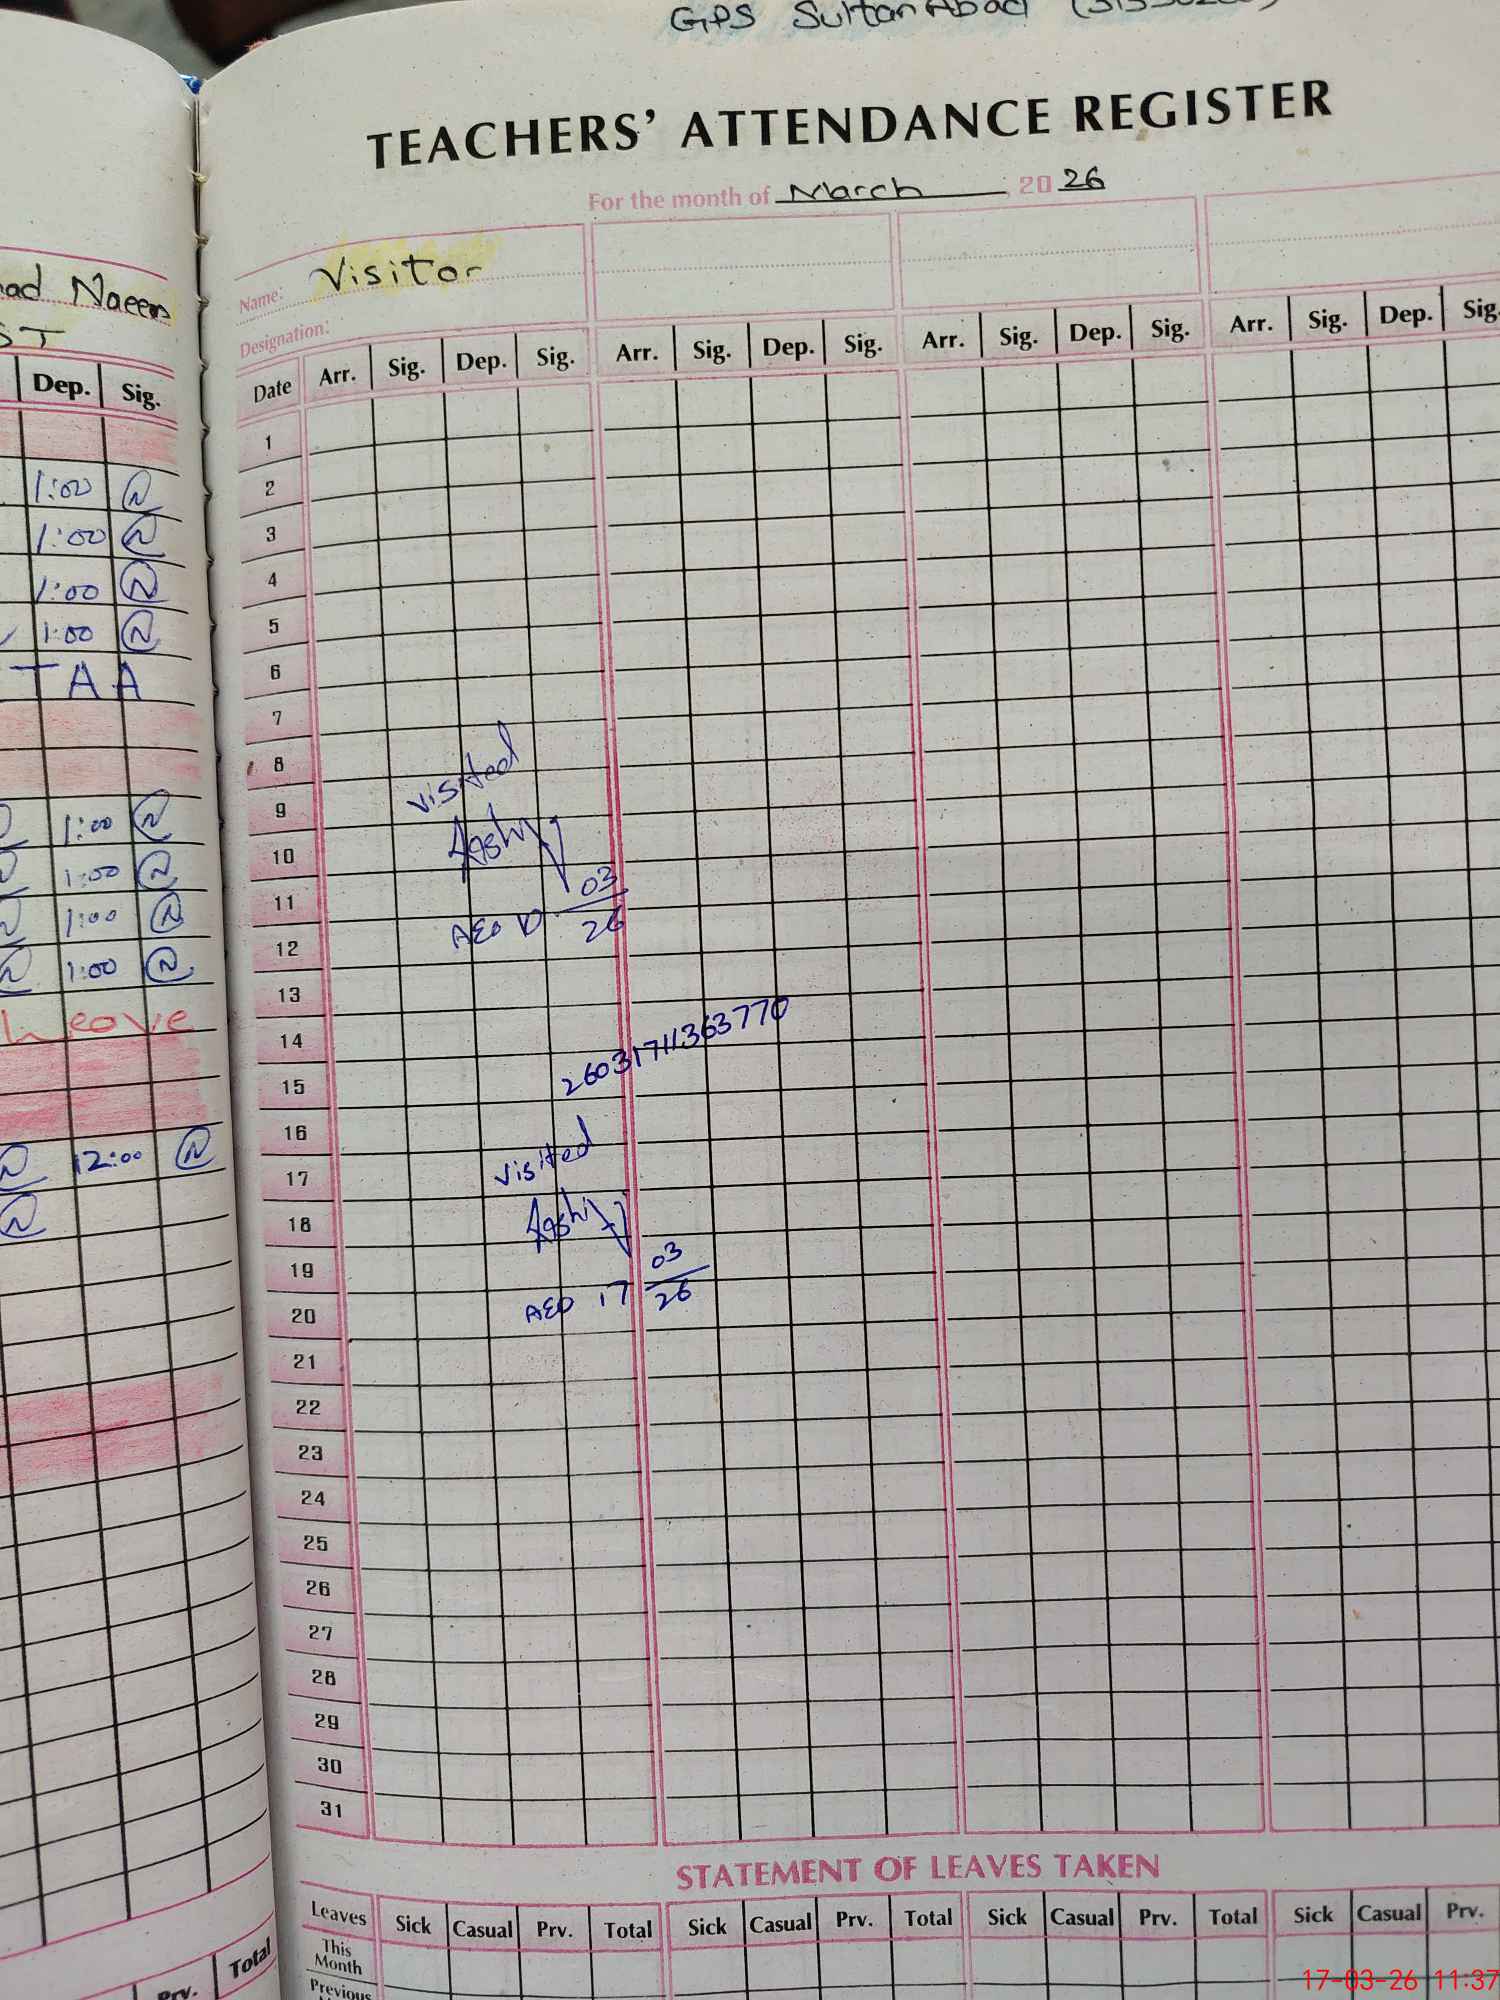 GPS SultanAbad
TEACHERS' ATTENDANCE REGISTER
For the month of March 2026
Name: Visitor
Designation:
Date Arr. Sig. Dep. Sig. Arr. Sig. Dep. Sig. Arr. Sig. Dep. Sig. Arr. Sig. Dep. Sig.
1
2
3
4
5
6
7
8
9
10
11
12
13
14
15
16
17
18
19
20
21
22
23
24
25
26
27
28
29
30
31
visited
AEO 10 03/26
26031711363770
visited
AEO 17 03/26
STATEMENT OF LEAVES TAKEN
Leaves Sick Casual Prv. Total Sick Casual Prv. Total Sick Casual Prv. Total Sick Casual Prv.
This Month
Previous
Naeem
Dep. Sig.
1:00
1:00
1:00
1:00
T A A
1:00
1:00
1:00
1:00
Leave
12:00
Prv. Total
17-03-26 11:37